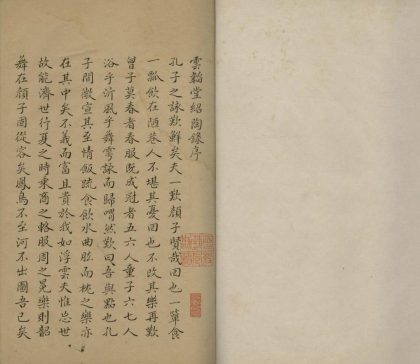 雲韜堂紹陶錄序
孔子之詠歎鮮矣夫一歎顏子賢哉回也一簞食
一瓢飲在陋巷人不堪其憂回也不改其樂再歎
曾子莫春者春服既成冠者五六人童子六七人
浴乎沂風乎舞雩詠而歸喟然歎曰吾與點也孔
子閒微宣其至情飯疏食飲水曲肱而枕之樂亦
在其中矣不義而富且貴於我如浮雲夫惟忘世
故能濟世行夏之時乘商之輅服周之冕樂則韶
舞在顏子固從容矣鳳鳥不至河不出圖吾已矣